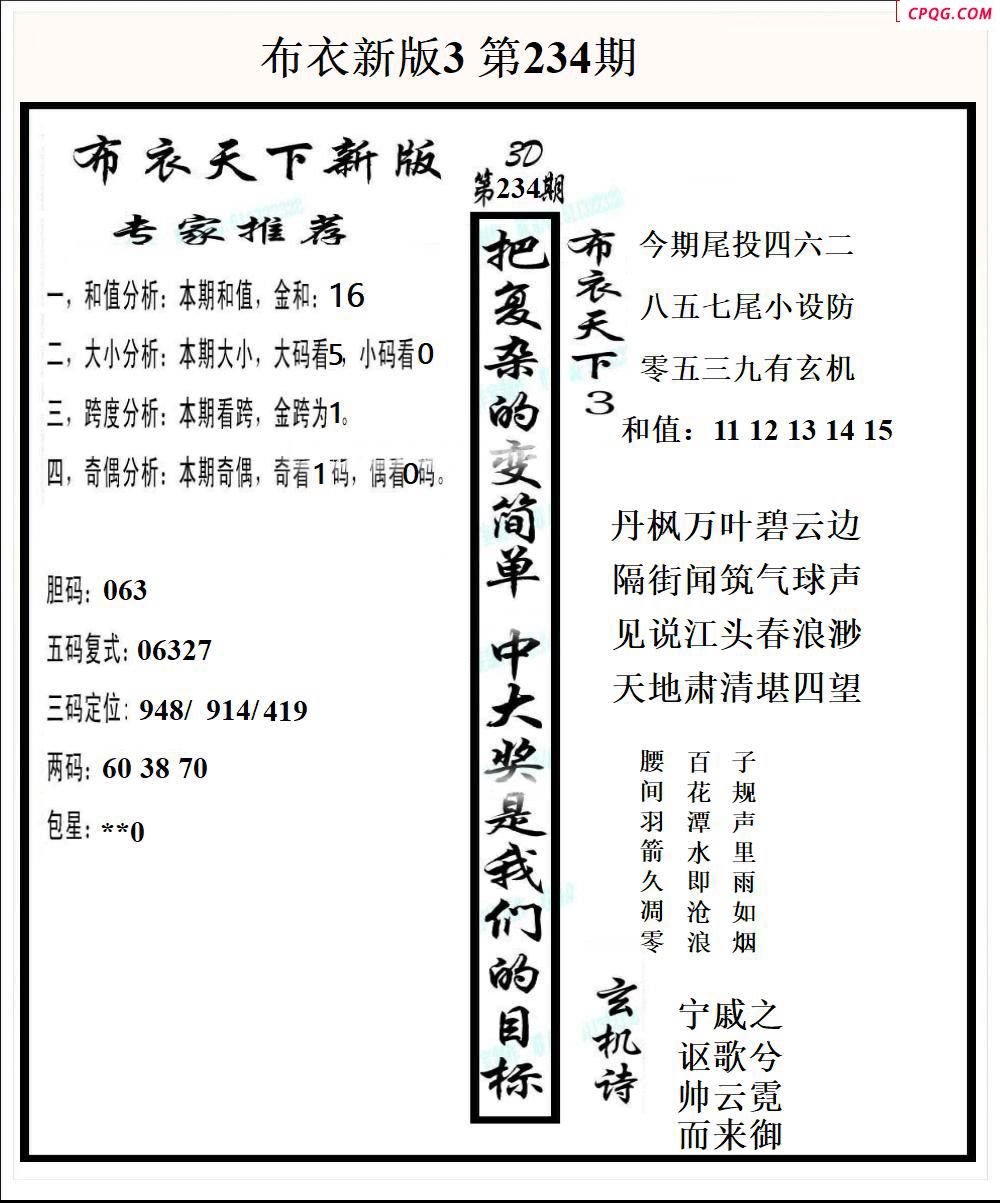 CPQG.COM
布衣新版3 第234期
布衣天下新版
专家推荐
一，和值分析：本期和值，金和：16
二，大小分析：本期大小，大码看5，小码看0
三，跨度分析：本期看跨，金跨为1。
四，奇偶分析：本期奇偶，奇看1码，偶看0码。
胆码：063
五码复式：06327
三码定位：948/ 914/419
两码：60 38 70
包星：**0
3D
第234期
把复杂的变简单 中大奖是我们的目标
布衣天下3
今期尾投四六二
八五七尾小设防
零五三九有玄机
和值：11 12 13 14 15
丹枫万叶碧云边
隔街闻筑气球声
见说江头春浪渺
天地肃清堪四望
子规声里雨如烟
百花潭水即沧浪
腰间羽箭久凋零
玄机诗
宁戚之
讴歌兮
帅云霓
而来御